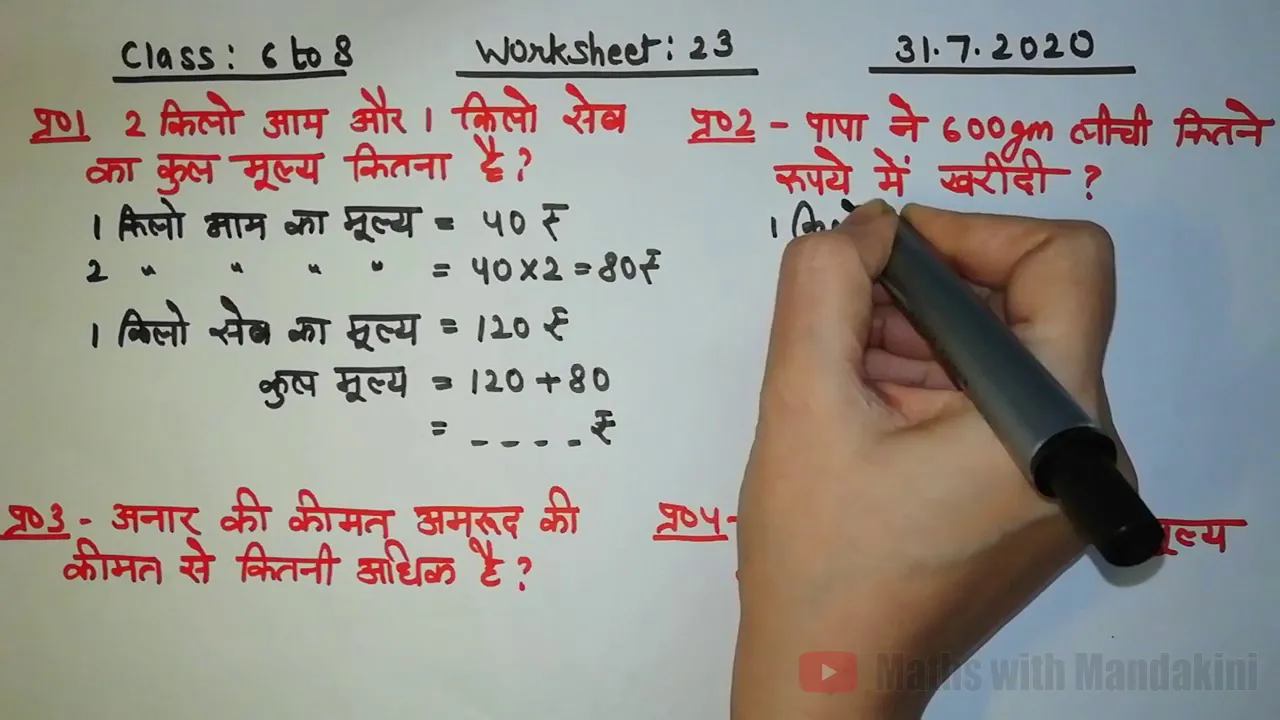 Class: 6 to 8
Worksheet: 23
31.7.2020
प्र01 2 किलो आम और 1 किलो सेब
का कुल मूल्य कितना है?
1 किलो आम का मूल्य = 40 ₹
2 " " " " = 40×2 = 80₹
1 किलो सेब का मूल्य = 120 ₹
कुल मूल्य = 120 + 80
= _ _ _ _ ₹
प्र02 - पापा ने 600gm लीची कितने
रुपये में खरीदी ?
1
प्र03 - अनार की कीमत अमरूद की
कीमत से कितनी अधिक है ?
प्र04 - मूल्य
Maths with Mandakini